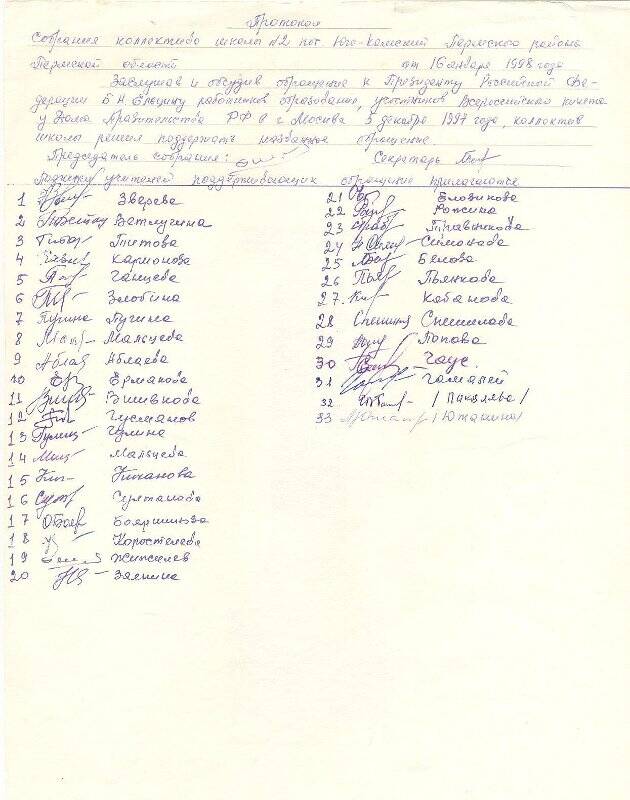 Протокол
собрания коллектива школы №2 пос. Юго-Камский Пермского района
Пермской области от 16 января 1998 года
Заслушав и обсудив обращение к Президенту Российской Фе-
дерации Б Н Ельцину работников образования, участников Всероссийского пикета
у Дома Правительства РФ в г Москва 3 декабря 1997 года, коллектив
школы решил поддержать названное обращение.
Председатель собрания: Секретарь
Подписи учителей поддерживающих обращение прилагаются
1 Зверева
2 Ветлугина
3 Титова
4
5 Ганцева
6 Злобина
7 Пугина Пугина
8 Мальцева
9 Аблаева
10 Ермакова
11 Вшивкова
12 Гусманов
13 Гулина
14 Мальцева
15
16 Султанова
17 Бояршинова
18 Коростелева
19
20 Зянкина
21 Еловикова
22
23 Травникова
24 Симонова
25 Белова
26 Пьянкова
27. Кабанова
28
29 Попова
30 Гаус.
31 Гамалей
32
33 /Юташина/